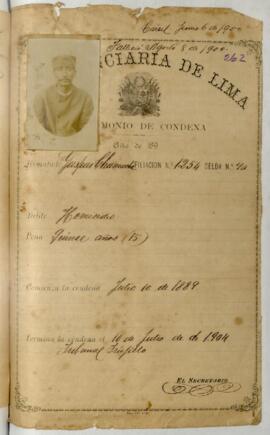 Junio 6 de 190
Falleció Agosto 8 de 1900
262
CIARIA DE LIMA
MONIO DE CONDENA
FILIACION N.º 1254 CELDA N.º
Delito Homicidio
Pena Quince años (15)
Comienza la condena Julio 10 de 1889
Termina la condena el 10 de Julio de 1904
Tribunal Trujillo
EL SECRETARIO